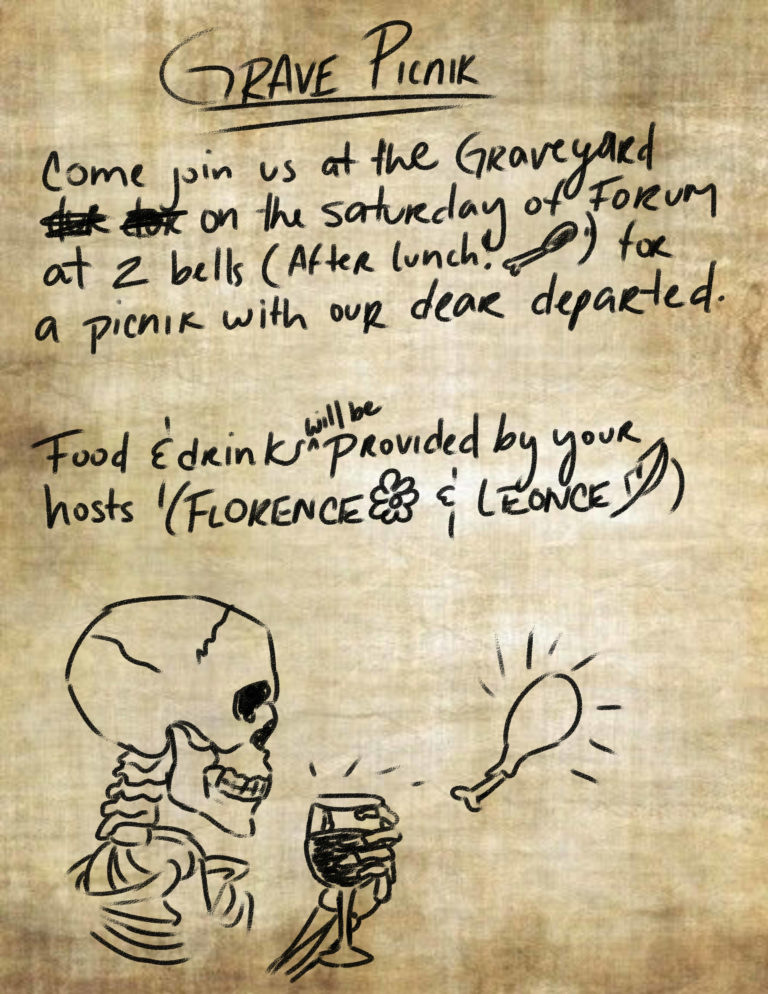 GRAVE PICNIK
Come join us at the Graveyard
on the saturday of Forum
at 2 bells (After lunch!) for
a picnik with our dear departed.
Food & drinks will be provided by your
hosts (FLORENCE & LEONCE)